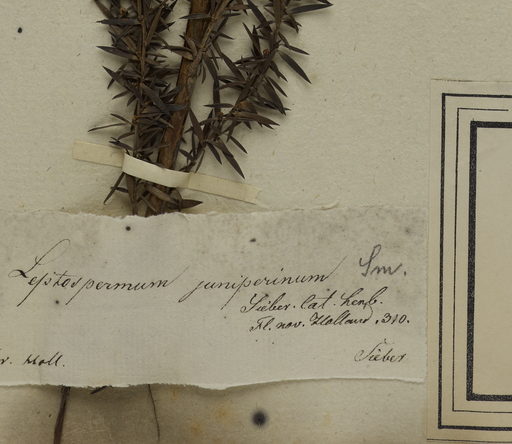 Leptospermum juniperinum Sm.
Sieber. cat. herb.
Fl. nov. Holland. 310.
r. Holl.
Sieber